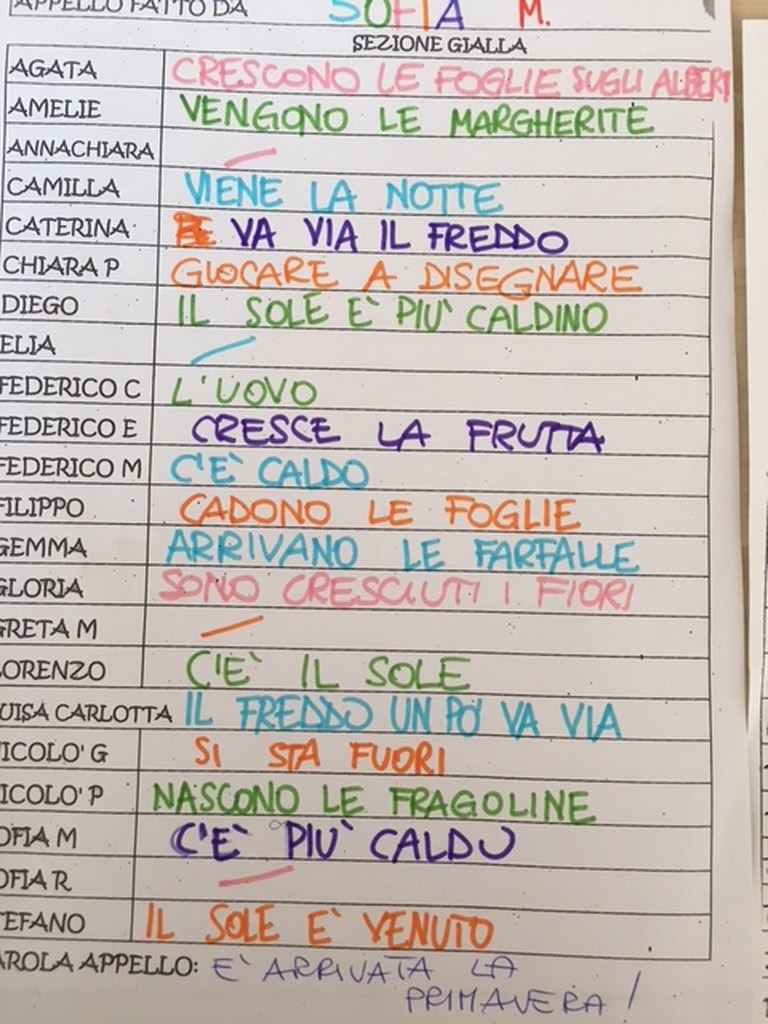 APPELLO FATTO DA SOFIA M.
SEZIONE GIALLA
AGATA CRESCONO LE FOGLIE SUGLI ALBERI
AMELIE VENGONO LE MARGHERITE
ANNACHIARA
CAMILLA VIENE LA NOTTE
CATERINA VA VIA IL FREDDO
CHIARA P GIOCARE A DISEGNARE
DIEGO IL SOLE E' PIU' CALDINO
ELIA
FEDERICO C L'UOVO
FEDERICO E CRESCE LA FRUTTA
FEDERICO M C'E' CALDO
FILIPPO CADONO LE FOGLIE
GEMMA ARRIVANO LE FARFALLE
GLORIA SONO CRESCIUTI I FIORI
GRETA M
LORENZO C'E' IL SOLE
UISA CARLOTTA IL FREDDO UN PO' VA VIA
ICOLO' G SI STA FUORI
ICOLO' P NASCONO LE FRAGOLINE
OFIA M C'E' PIU' CALDO
OFIA R
TEFANO IL SOLE E' VENUTO
AROLA APPELLO: E' ARRIVATA LA
PRIMAVERA!